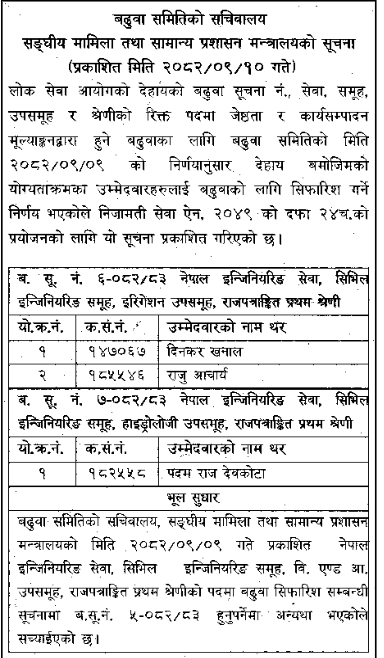 बढुवा समितिको सचिवालय
सङ्घीय मामिला तथा सामान्य प्रशासन मन्त्रालयको सूचना
(प्रकाशित मिति २०८२/०९/१० गते)
लोक सेवा आयोगको देहायको बढुवा सूचना नं., सेवा, समूह,
उपसमूह र श्रेणीको रिक्त पदमा जेष्ठता र कार्यसम्पादन
मूल्याङ्कनद्वारा हुने बढुवाका लागि बढुवा समितिको मिति
२०८२/०९/०९ को निर्णयानुसार देहाय बमोजिमको
योग्यताक्रमका उम्मेदवारहरुलाई बढुवाको लागि सिफारिश गर्ने
निर्णय भएकोले निजामती सेवा ऐन, २०४९ को दफा २४च.को
प्रयोजनको लागि यो सूचना प्रकाशित गरिएको छ।
ब. सू. नं. ६-०८२/८३ नेपाल इन्जिनियरिङ सेवा, सिभिल
इन्जिनियरिङ समूह, इरिगेशन उपसमूह, राजपत्राङ्कित प्रथम श्रेणी
यो.क्र.नं. क.सं.नं. उम्मेदवारको नाम थर
१ १४७०६७ दिनकर खनाल
२ १८५५४६ राजु आचार्य
ब. सू. नं. ७-०८२/८३ नेपाल इन्जिनियरिङ सेवा, सिभिल
इन्जिनियरिङ समूह, हाइड्रोलोजी उपसमूह, राजपत्राङ्कित प्रथम श्रेणी
यो.क्र.नं. क.सं.नं. उम्मेदवारको नाम थर
१ १८२५५८ पदम राज देवकोटा
भूल सुधार
बढुवा समितिको सचिवालय, सङ्घीय मामिला तथा सामान्य प्रशासन
मन्त्रालयको मिति २०८२/०९/०९ गते प्रकाशित नेपाल
इन्जिनियरिङ सेवा, सिभिल इन्जिनियरिङ समूह, वि. एण्ड आ.
उपसमूह, राजपत्राङ्कित प्रथम श्रेणीको पदमा बढुवा सिफारिस सम्बन्धी
सूचनामा ब.सू.नं. ५-०८२/८३ हुनुपर्नेमा अन्यथा भएकोले
सच्याईएको छ।